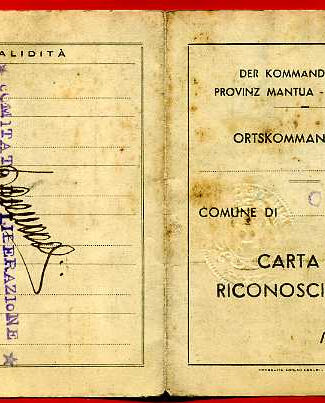 ALIDITÀ
★ COMITATO
LIBERAZIONE ★
DER KOMMAND
PROVINZ MANTUA -
ORTSKOMMAN
COMUNE DI
CARTA
RICONOSCI